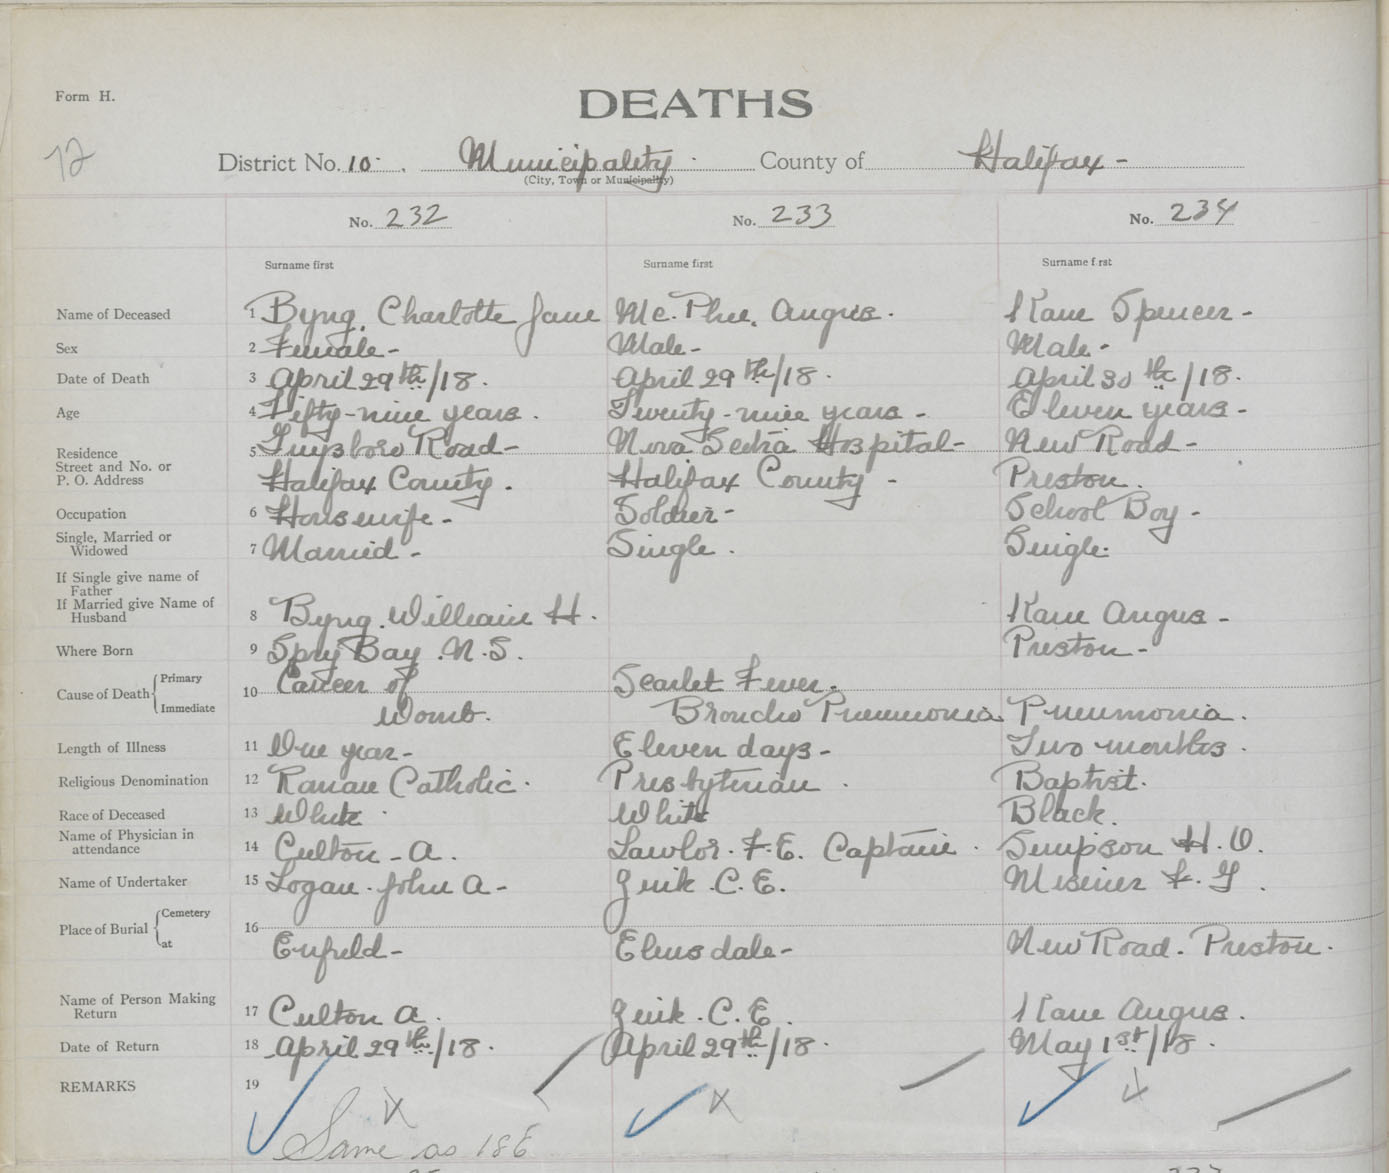 Form H.
DEATHS
12
District No. 10. Municipality County of Halifax -
(City, Town or Municipality)
No. 232 No. 233 No. 234
Surname first Surname first Surname f rst
Name of Deceased 1 Byng, Charlotte Jane Mc.Phee, Angus. Kane Spencer -
Sex 2 Female - Male - Male -
Date of Death 3 April 29th/18. April 29th/18. April 30th/18.
Age 4 Fifty-nine years. Twenty-nine years - Eleven years -
Residence 5 Guysboro Road - Nova Scotia Hospital - New Road -
Street and No. or
P. O. Address Halifax County. Halifax County - Preston.
Occupation 6 Housewife - Soldier - School Boy -
Single, Married or
Widowed 7 Married - Single. Single.
If Single give name of
Father
If Married give Name of
Husband 8 Byng. William H. Kane Angus -
Where Born 9 Spry Bay. N.S. Preston -
Cause of Death Primary 10 Cancer of Scarlet Fever.
Immediate Womb. Broncho Pneumonia Pneumonia.
Length of Illness 11 One year - Eleven days - Two months.
Religious Denomination 12 Roman Catholic. Presbyterian. Baptist.
Race of Deceased 13 White. White Black.
Name of Physician in
attendance 14 Culton - A. Lawlor. F.E. Captain. Simpson H.O.
Name of Undertaker 15 Logan. John A - C.E. Misener
Place of Burial Cemetery 16
at Enfield - Elmsdale - New Road. Preston.
Name of Person Making
Return 17 Culton A. C.E. Kane Angus.
Date of Return 18 April 29th/18. April 29th/18. May 1st/18.
REMARKS 19
Same as 186